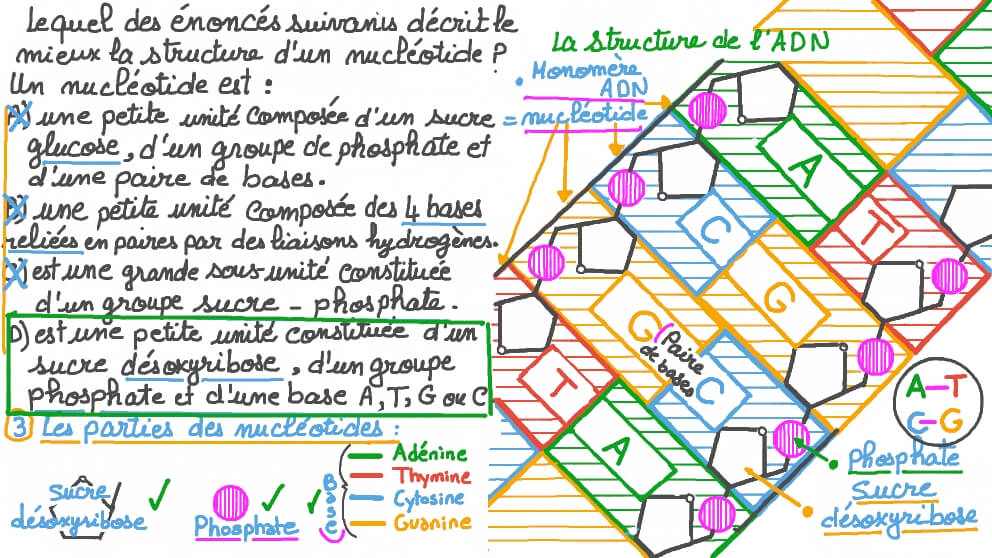 Lequel des énoncés suivants décrit le
mieux la structure d'un nucléotide ?
Un nucléotide est :
A) une petite unité composée d'un sucre
glucose, d'un groupe de phosphate et
d'une paire de bases.
B) une petite unité composée des 4 bases
reliées en paires par des liaisons hydrogènes.
C) est une grande sous-unité constituée
d'un groupe sucre - phosphate.
D) est une petite unité constituée d'un
sucre désoxyribose, d'un groupe
phosphate et d'une base A, T, G ou C
3 Les parties des nucléotides :
Sucre
désoxyribose
Phosphate
Bases
Adénine
Thymine
Cytosine
Guanine
La structure de l'ADN
• Monomère
ADN
= nucléotide
A
T
C
G
G
C
T
A
Paire
de bases
A-T
C-G
• Phosphate
Sucre
• désoxyribose